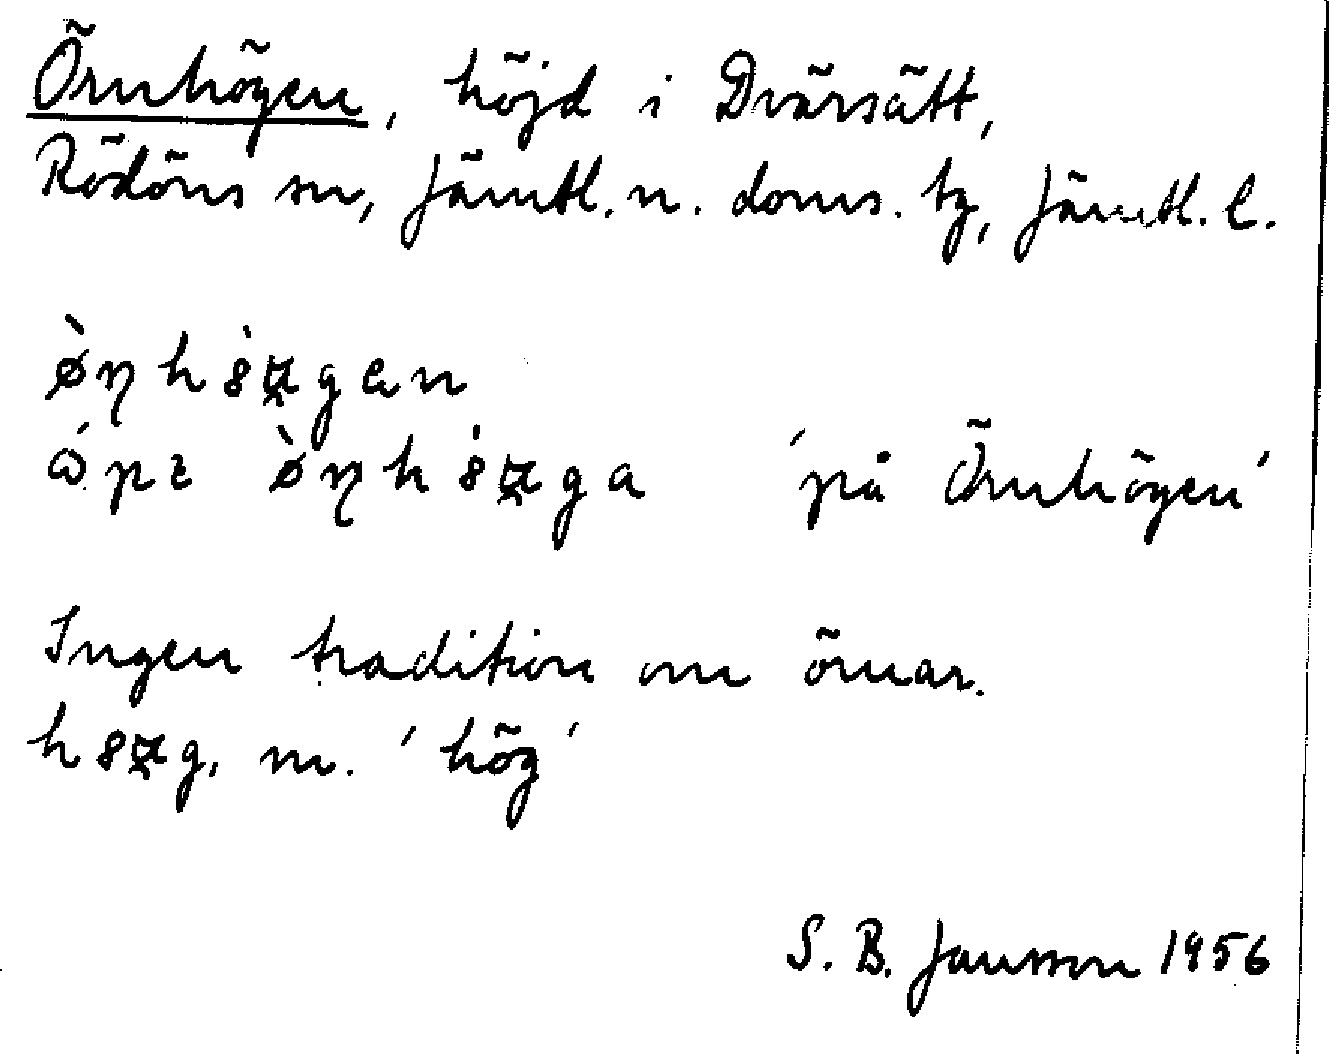 Örnhögen, höjd i Dvärsätt,
Rödöns sn, Jämtl. n. doms. tg, Jämtl. l.
'på Örnhögen'
Ingen tradition om örnar.
m. 'hög'
S. B. Jansson 1956